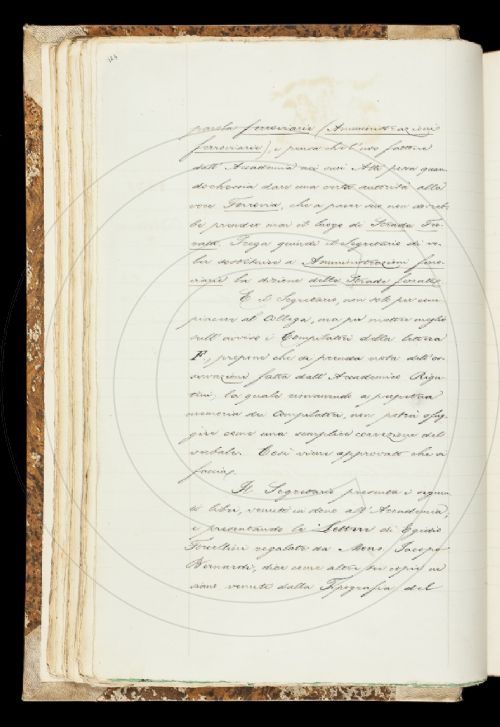 324
parola ferroviarie (Amministrazioni
ferroviarie), e pensa che l'uso fattone
dall'Accademia nei suoi Atti possa quan
dochessia dare una certa autorità alla
voce Ferrovia, che a parer suo non dovreb
be prender mai il luogo di Strada Fer
rata. Prega quindi il Segretario di vo
ler sostituire a Amministrazioni ferro
viarie la dizione delle Strade ferrate.
E il Segretario, non solo per com
piacere al Collega, ma per mettere meglio
sull'avviso i Compilatori della lettera
F, propone che si prenda nota dell'os
servazione fatta dall'Accademico Rigu
tini, la quale rimanendo a perpetua
memoria dei Compilatori, non potrà sfug
gire come una semplice correzione del
verbale. E così viene approvato che si
faccia.
Il Segretario presenta i seguen
ti libri, venuti in dono all'Accademia,
e presentando le Lettere di Egidio
Forcellini regalate da Mons. Jacopo
Bernardi, dice come altre tre copie ne
siano venute dalla Tipografia del